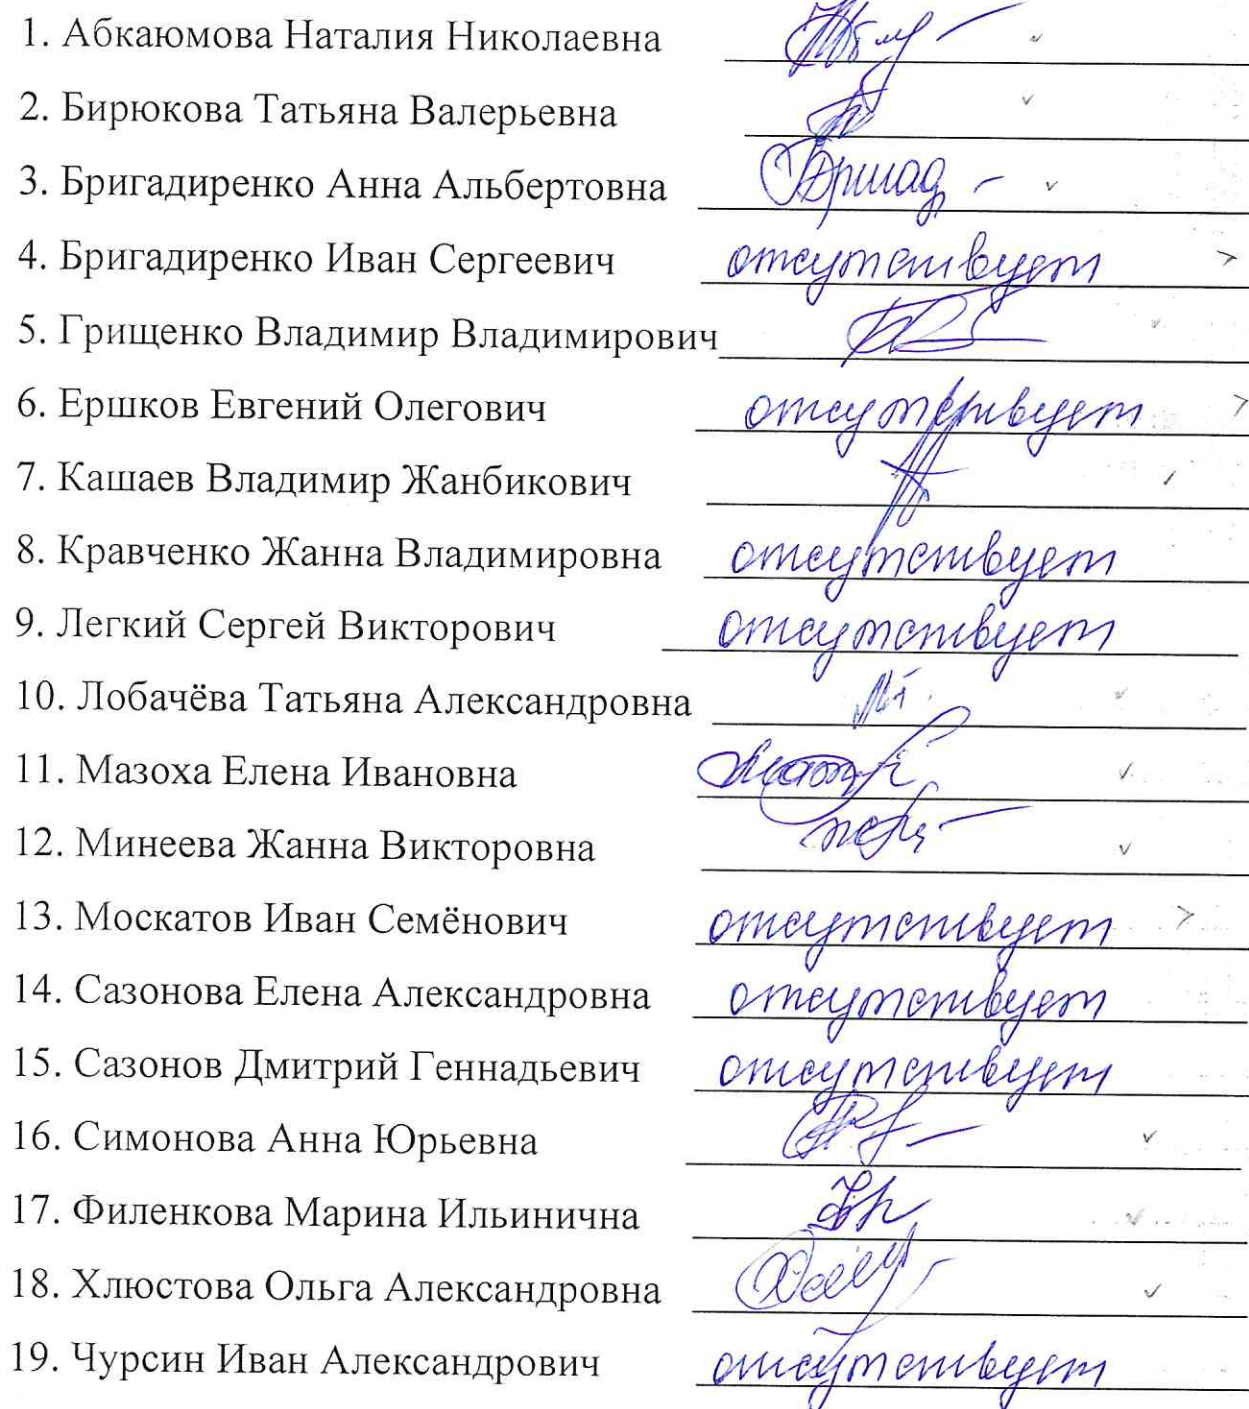 1. Абкаюмова Наталия Николаевна
2. Бирюкова Татьяна Валерьевна
3. Бригадиренко Анна Альбертовна
4. Бригадиренко Иван Сергеевич отсутствует
5. Грищенко Владимир Владимирович
6. Ершков Евгений Олегович отсутствует
7. Кашаев Владимир Жанбикович
8. Кравченко Жанна Владимировна отсутствует
9. Легкий Сергей Викторович отсутствует
10. Лобачёва Татьяна Александровна
11. Мазоха Елена Ивановна
12. Минеева Жанна Викторовна
13. Москатов Иван Семёнович отсутствует
14. Сазонова Елена Александровна отсутствует
15. Сазонов Дмитрий Геннадьевич отсутствует
16. Симонова Анна Юрьевна
17. Филенкова Марина Ильинична
18. Хлюстова Ольга Александровна
19. Чурсин Иван Александрович отсутствует